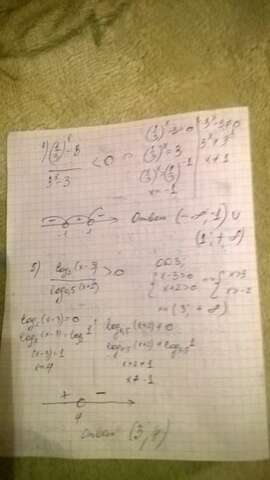 4) ((1/3)^x - 3) / (3^x - 3) < 0
(1/3)^x - 3 = 0
(1/3)^x = 3
(1/3)^x = (1/3)^-1
x = -1
3^x - 3 ≠ 0
x ≠ 1
-1 1
Ответ (-∞; -1) ∪
(1; +∞)
5) log₂(x-3) / log₀,₅(x+2) > 0
ОДЗ:
{ x-3>0
x+2>0 => { x>3
x>-2
(3; +∞)
log₂(x-3)=0
log₂(x-3)=log₂1
(x-3)=1
x=4
log₀,₅(x+2)≠0
log₀,₅(x+2)≠log₀,₅1
x+2≠1
x≠-1
+ -
4
Ответ (3, 4)